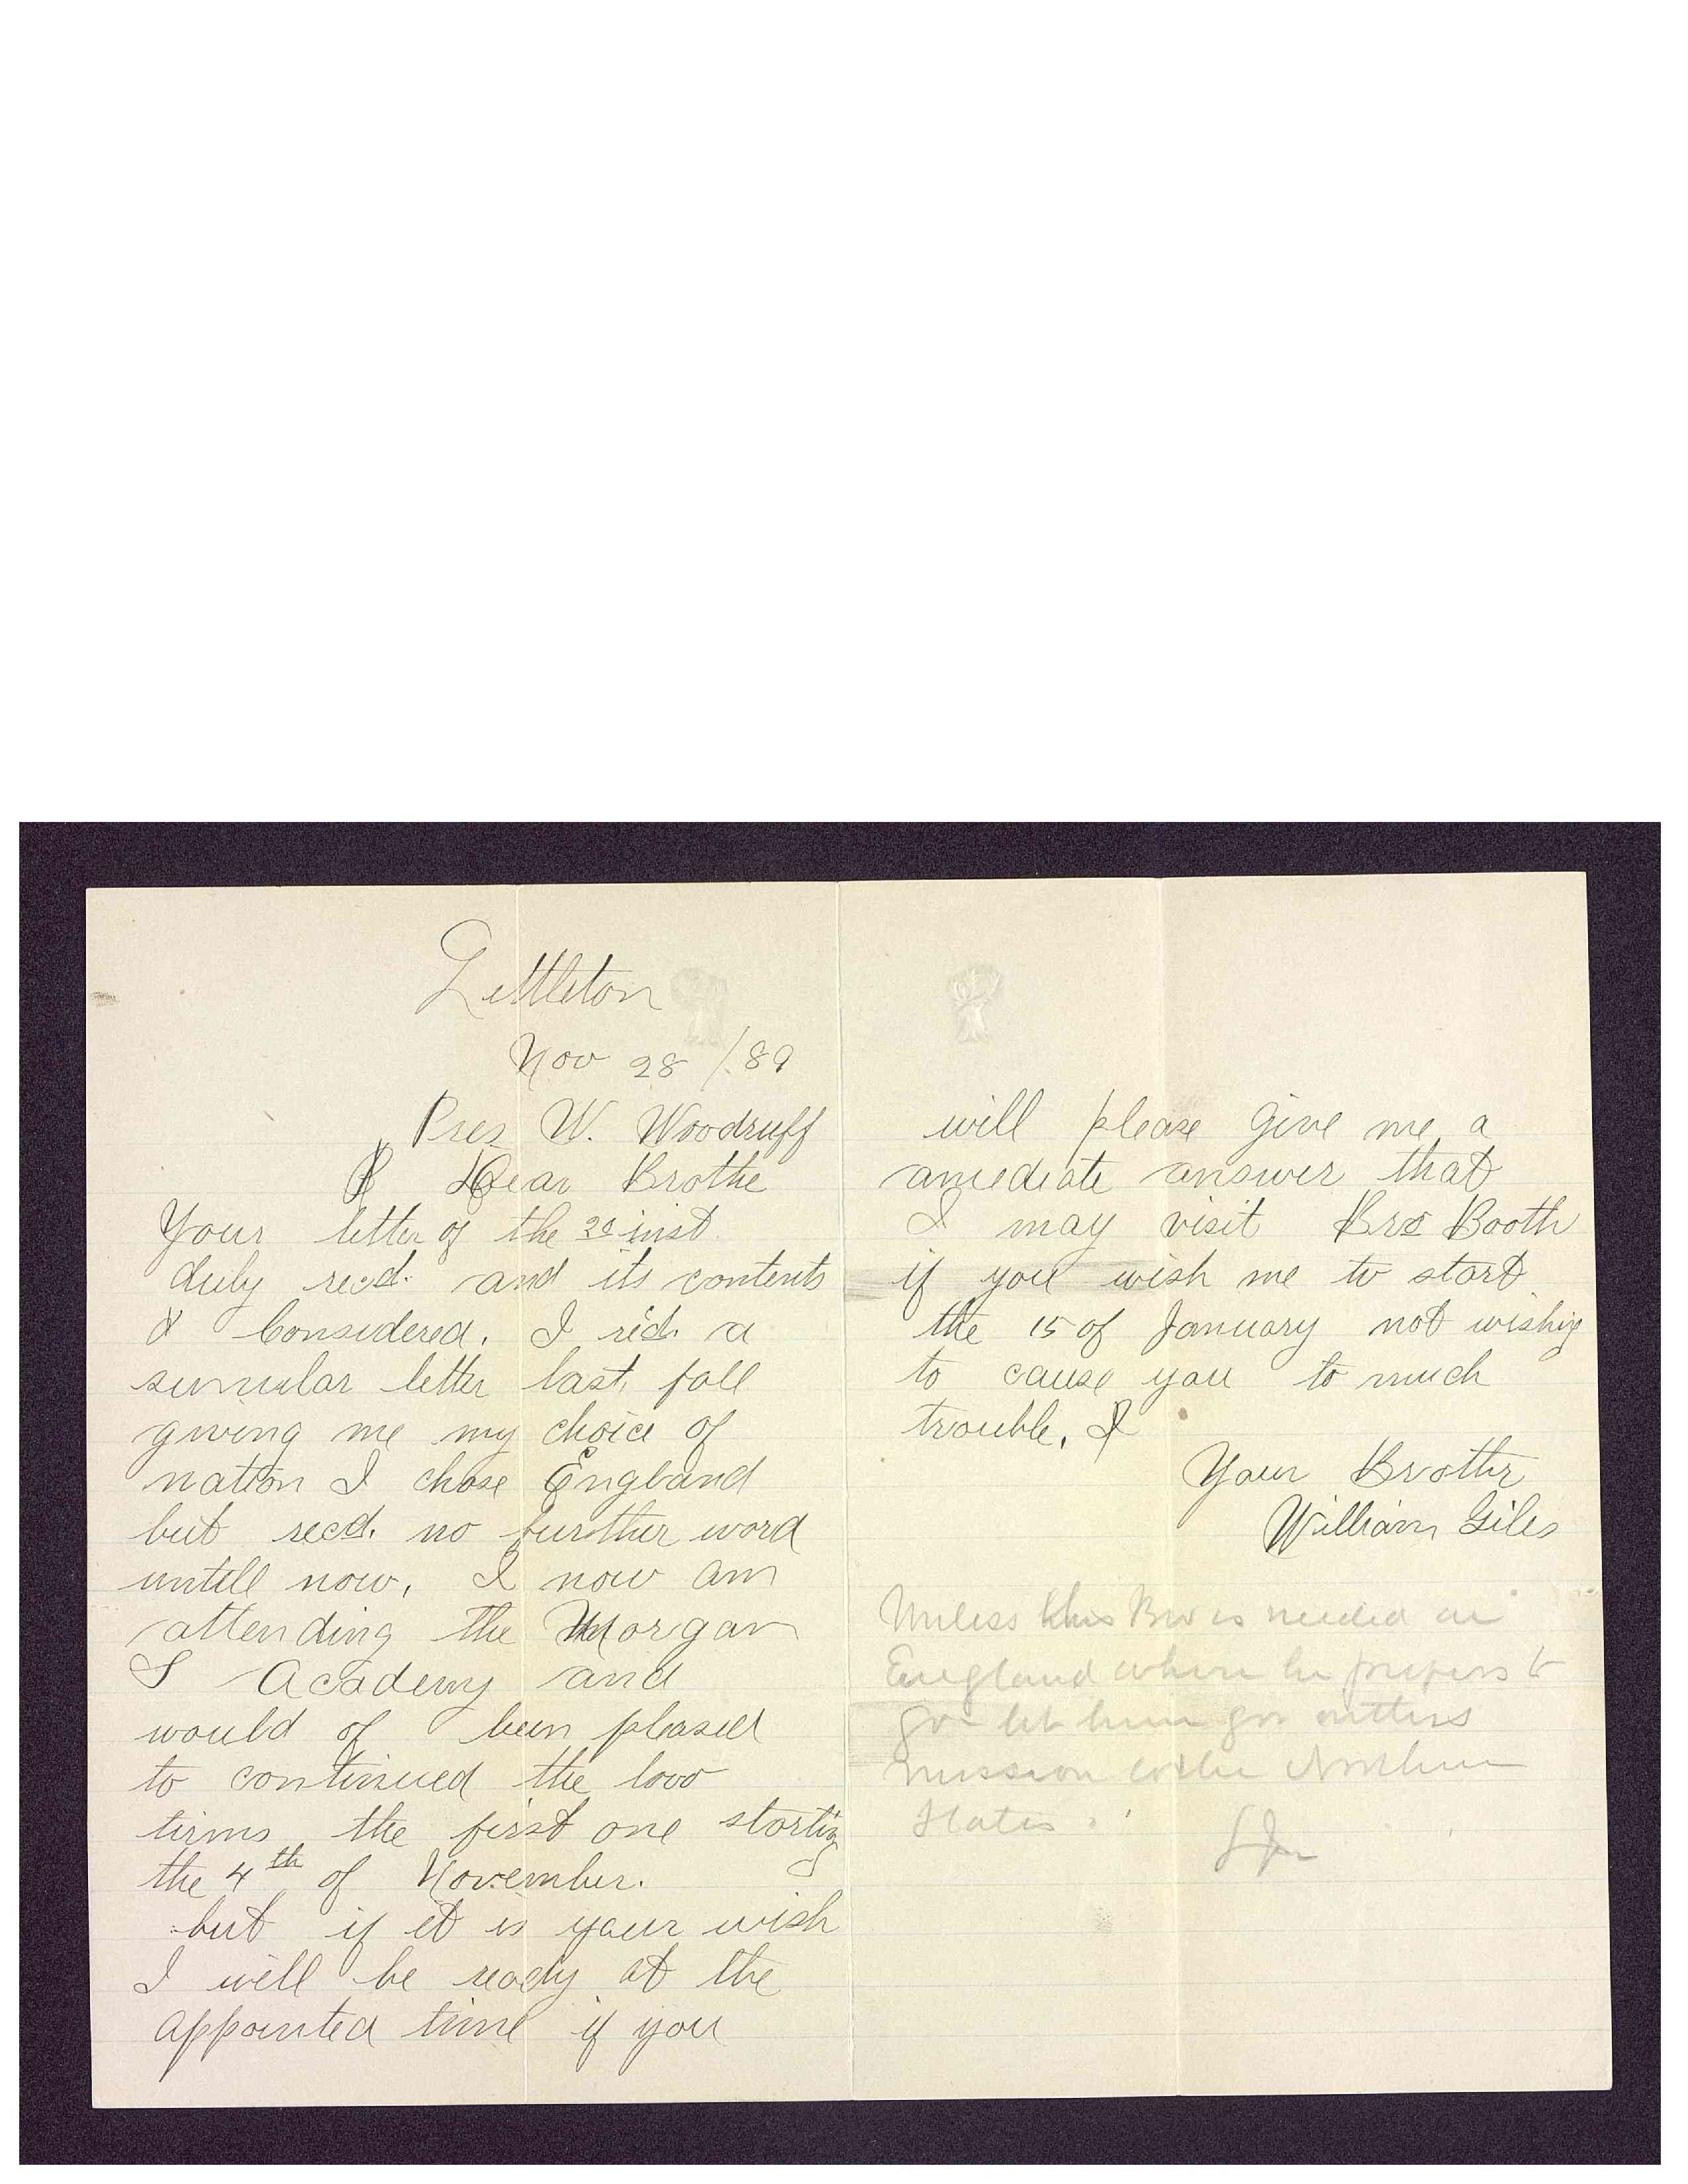 Littleton
Nov 28 /89
Pres W. Woodruff
Dear Brothe
Your letter of the 20 inst
duly recd. and its contents
& Considered. I rcd. a
simular letter last fall
giving me my choice of
nation I chose England
but recd. no further word
untill now. I now am
attending the Morgan
S Academy and
would of been pleased
to continued the two
tirms the first one starting
the 4th of November.
but if it is your wish
I will be ready at the
appointed time if you
will please give me a
amediate answer that
I may visit Bro Booth
if you wish me to start
the 15 of January not wishing
to cause you to much
trouble, I
Your Brothr
William Giles
Unless this Bro is needed in
England where he prefers to
go let him go on this
mission to the Northern
States.